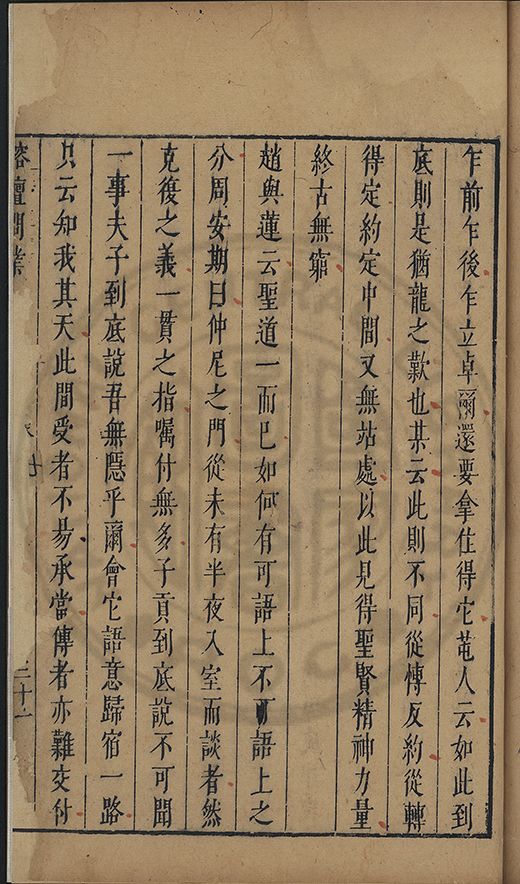 乍前乍後乍立卓爾還要拿住得它黃人云如此到
底則是猶龍之歎也某云此則不同從博反約從轉
得定約定中間又無站處以此見得聖賢精神力量
終古無窮
趙與蓮云聖道一而已如何有可語上不可語上之
分周安期曰仲尼之門從未有半夜入室而談者然
克復之義一貫之指囑付無多子貢到底說不可聞
一事夫子到底說吾無隱乎爾會它語意歸宿一路
只云知我其天此間受者不易承當傳者亦難交付
榕壇問業
二十一